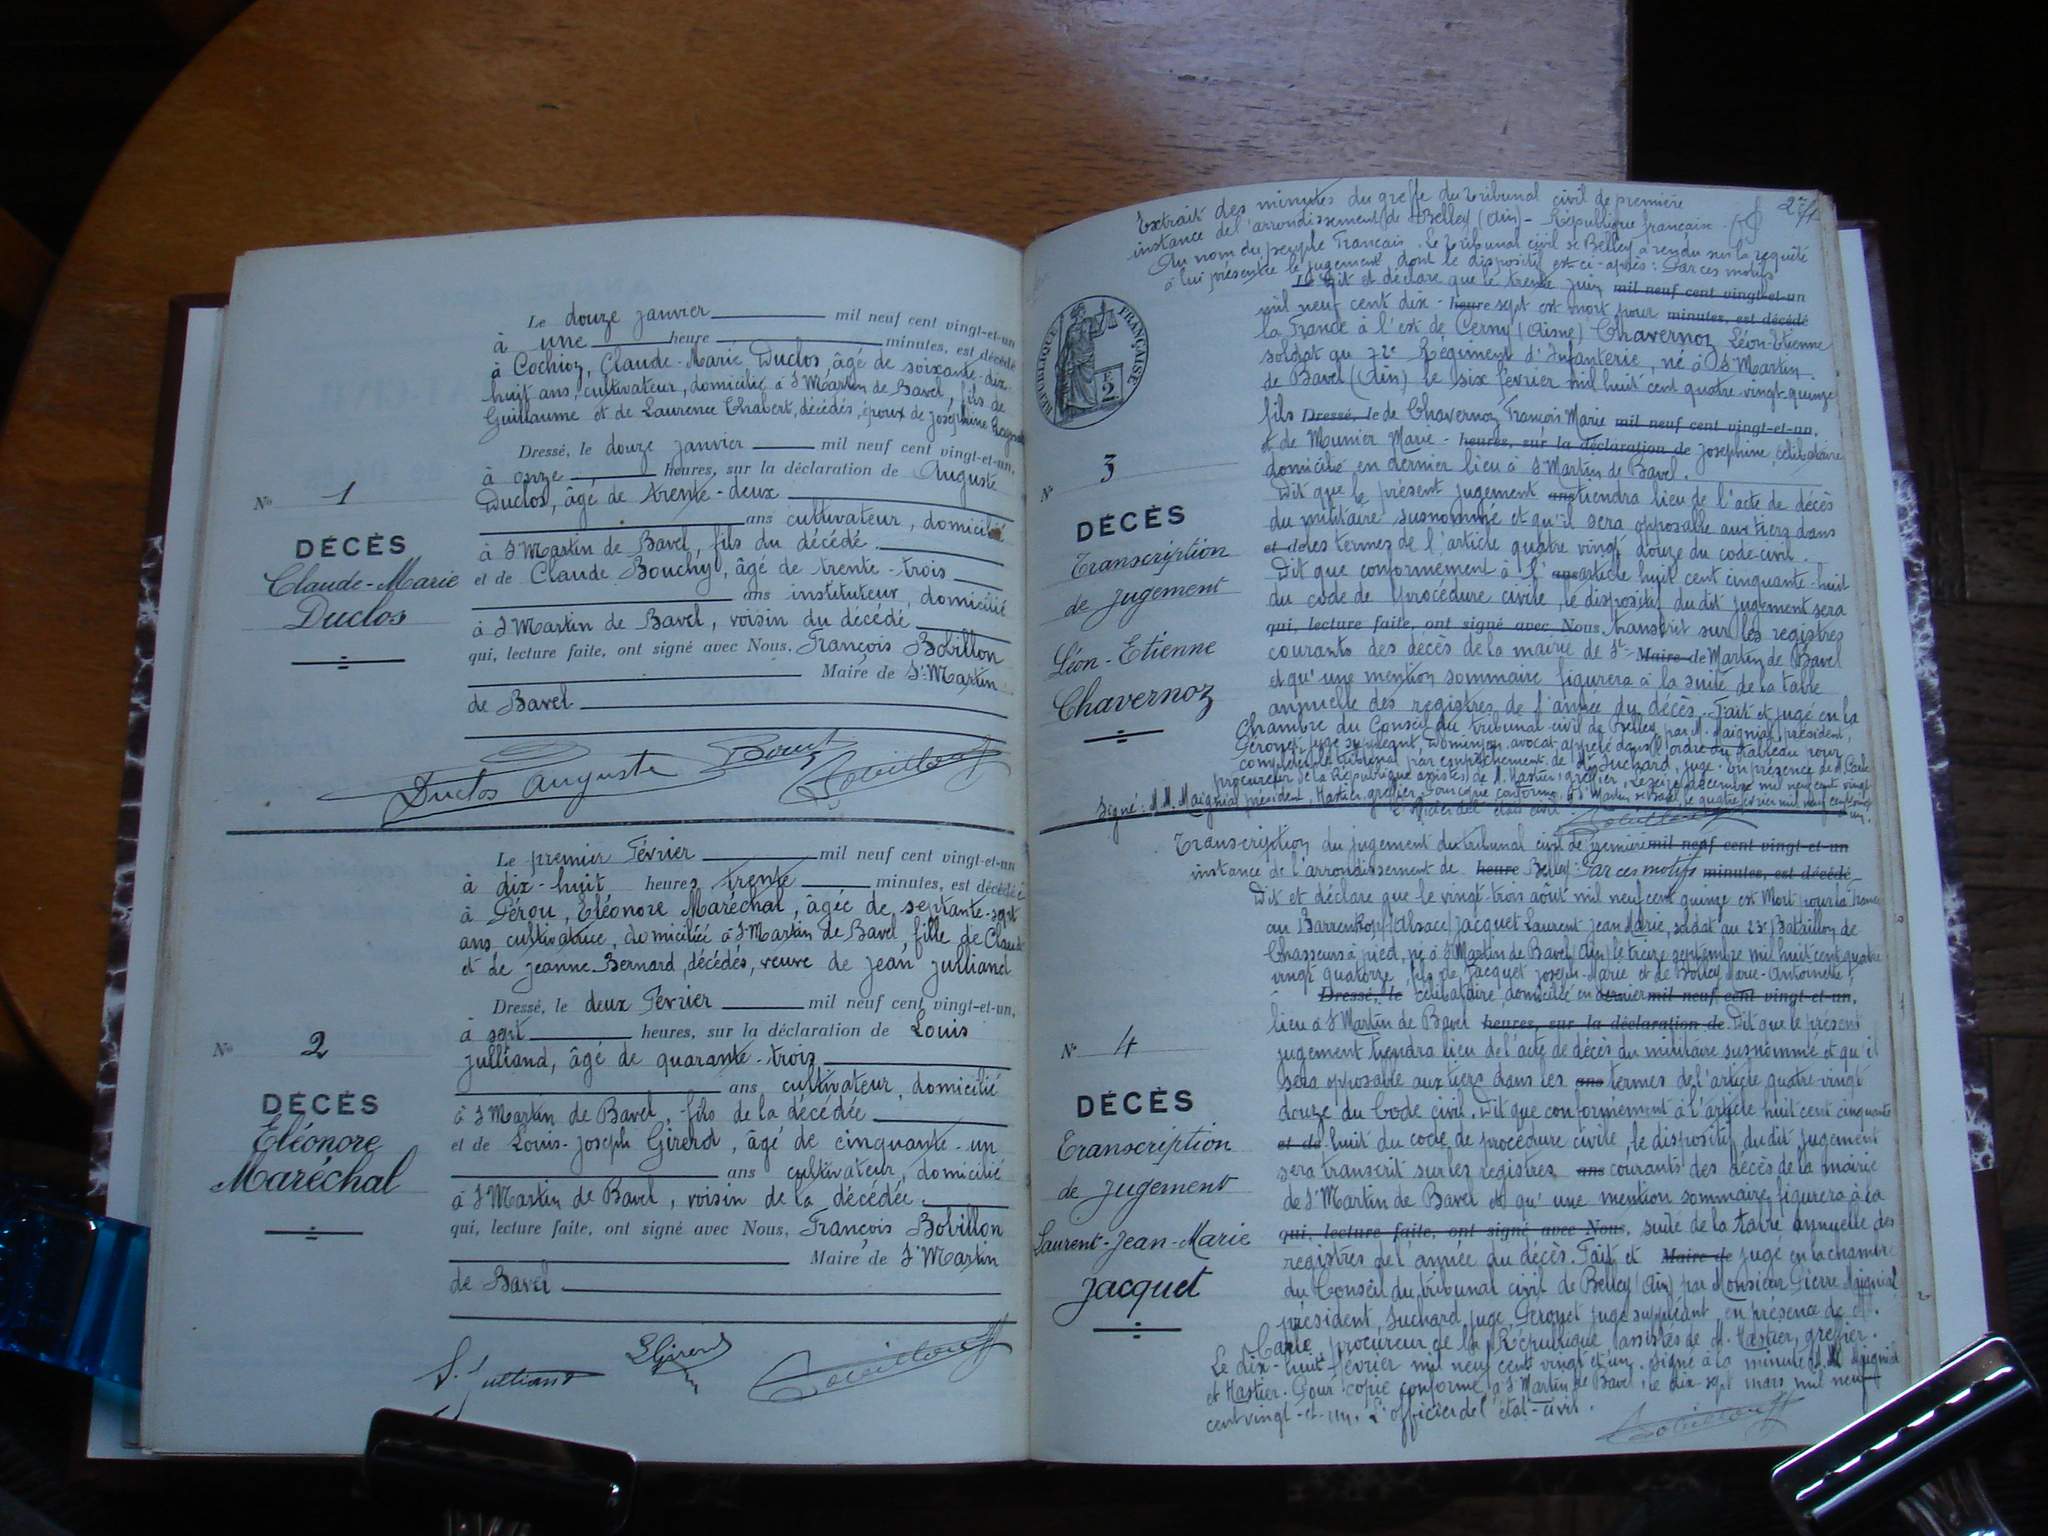 Le douze janvier mil neuf cent vingt-et-un
à une heure minutes, est décédé
à Cochioz, Claude-Marie Duclos, âgé de soixante-dix-
huit ans, cultivateur, domicilié à St Martin de Bavel, fils de
Guillaume et de Laurence Chabert, décédés, époux de Joséphine
Dressé, le douze janvier mil neuf cent vingt-et-un,
à onze heures, sur la déclaration de Auguste
Duclos, âgé de trente-deux
ans cultivateur, domicilié
à St Martin de Bavel, fils du décédé
et de Claude Bouchy, âgé de trente-trois
ans instituteur, domicilié
à St Martin de Bavel, voisin du décédé,
qui, lecture faite, ont signé avec Nous, François Bobillon
Maire de St Martin
de Bavel
No 1
DÉCÈS
Claude-Marie
Duclos
Duclos Auguste
Le premier Février mil neuf cent vingt-et-un
à dix-huit heures trente minutes, est décédée
à Pérou, Eléonore Maréchal, âgée de septante-sept
ans cultivatrice, domiciliée à St Martin de Bavel, fille de Claude
et de Jeanne Bernard, décédés, veuve de Jean Julliand
Dressé, le deux Février mil neuf cent vingt-et-un,
à sept heures, sur la déclaration de Louis
Julliand, âgé de quarante-trois
ans cultivateur, domicilié
à St Martin de Bavel, fils de la décédée
et de Louis-Joseph Girerd, âgé de cinquante-un
ans cultivateur, domicilié
à St Martin de Bavel, voisin de la décédée,
qui, lecture faite, ont signé avec Nous, François Bobillon
Maire de St Martin
de Bavel
No 2
DÉCÈS
Eléonore
Maréchal
L. Julliand
LGirerd
Extrait des minutes du greffe du tribunal civil de première
instance de l'arrondissement de Belley (Ain) - République française.
Au nom du peuple Français. Le tribunal civil de Belley a rendu sur la requête
à lui présentée le jugement dont le dispositif est ci-après: Par ces motifs
Dit et déclare que le trente juin mil neuf cent vingt-et-un
mil neuf cent dix- heure sept est mort pour minutes, est décédé
la France à l'est de Cerny (Aisne) Chavernoz Léon-Etienne
soldat au 72e Régiment d'Infanterie, né à St Martin
de Bavel (Ain) le six février mil huit cent quatre-vingt-quinze
fils Dressé, le de Chavernoz François Marie mil neuf cent vingt-et-un,
et de Meunier Marie- heures, sur la déclaration de Josephine, célibataire
domicilié en dernier lieu à St Martin de Bavel.
Dit que le présent jugement ans tiendra lieu de l'acte de décès
du militaire susnommé et qu'il sera opposable aux tiers dans
et de les termes de l'article quatre vingt douze du code civil.
Dit que conformément à l' ans article huit cent cinquante-huit
du code de procédure civile, le dispositif du dit jugement sera
qui, lecture faite, ont signé avec Nous, transcrit sur les registres
courants des décès de la mairie de St- Maire de Martin de Bavel
et qu'une mention sommaire figurera à la suite de la table
annuelle des registres de l'année du décès. Fait et jugé en la
Chambre du Conseil du tribunal civil de Belley par M. Maignial président,
juge suppléant, avocat appelé dans l'ordre du tableau pour
compléter le tribunal par empêchement de Mr Suchard, juge. En présence de M. Carle
procureur de la République assistés de M. Hastier, greffier. Le seize décembre mil neuf cent vingt.
Signé: M.M. Maignial président, Hastier greffier. Pour copie conforme, à St Martin de Bavel, le quatre
L'officier de l'état civil
RÉPUBLIQUE FRANÇAISE
2
No 3
DÉCÈS
Transcription
de jugement
Léon-Etienne
Chavernoz
Transcription du jugement du tribunal civil de première mil neuf cent vingt-et-un
instance de l'arrondissement de heure Belley: Par ces motifs minutes, est décédé
Dit et déclare que le vingt-trois août mil neuf cent quinze est Mort pour la France
au Barrenkopf (Alsace) Jacquet Laurent Jean Marie, soldat au 23e Bataillon de
Chasseurs à pied, né à St Martin de Bavel (Ain) le treize septembre mil huit cent quatre
vingt quatorze, fils de Jacquet Joseph-Marie et de Bolley Marie-Antoinette,
Dressé, le célibataire, domicilié en dernier mil neuf cent vingt-et-un,
lieu à St Martin de Bavel heures, sur la déclaration de Dit que le présent
jugement tiendra lieu de l'acte de décès du militaire susnommé et qu'il
sera opposable aux tiers dans les ans termes de l'article quatre-vingt
douze du Code civil. Dit que conformément à l'article huit cent cinquante
et de huit du code de procédure civile, le dispositif du dit jugement
sera transcrit sur les registres ans courants des décès de la mairie
de St Martin de Bavel et qu'une mention sommaire figurera à la
qui, lecture faite, ont signé avec Nous, suite de la table annuelle des
registres de l'année du décès. Fait et Maire de jugé en la chambre
du Conseil du tribunal civil de Belley (Ain) par Monsieur Pierre Maignial
président, Suchard juge, juge suppléant en présence de M.
Carle, procureur de la République assistés de M. Hastier, greffier.
Le dix-huit février mil neuf cent vingt et un. Signé à la minute M.M. Maignial
et Hastier. Pour copie conforme, à St Martin de Bavel, le dix-sept mars mil neuf
cent vingt-et-un. L'officier de l'état-civil.
No 4
DÉCÈS
Transcription
de jugement
Laurent-Jean-Marie
Jacquet